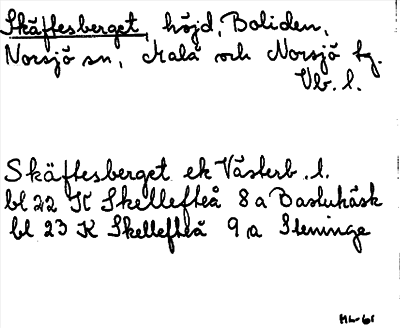 Skäftesberget, höjd, Boliden,
Norsjö sn, Malå och Norsjö tg.
Vb. l.
Skäftesberget ek Västerb. l.
bl 22 K Skellefteå 8 a Bastuhäsk
bl 23 K Skellefteå 9 a Steninge
HL-61